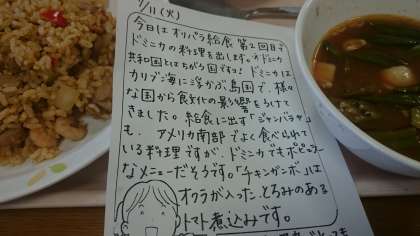 7/11(火)
今日はオリパラ給食第2回目で
ドミニカの料理を出します。※ドミニカ
共和国とはちがう国ですョ! ドミニカは
カリブ海に浮かぶ島国で、様々
な国から食文化の影響をうけて
きました。給食に出す「ジャンバラヤ」
も、アメリカ南部でよく食べられて
いる料理ですが、ドミニカでもポピュラー
なメニューだそうです。「チキンガンボ」は
オクラが入った、とろみのある
トマト煮込みです。